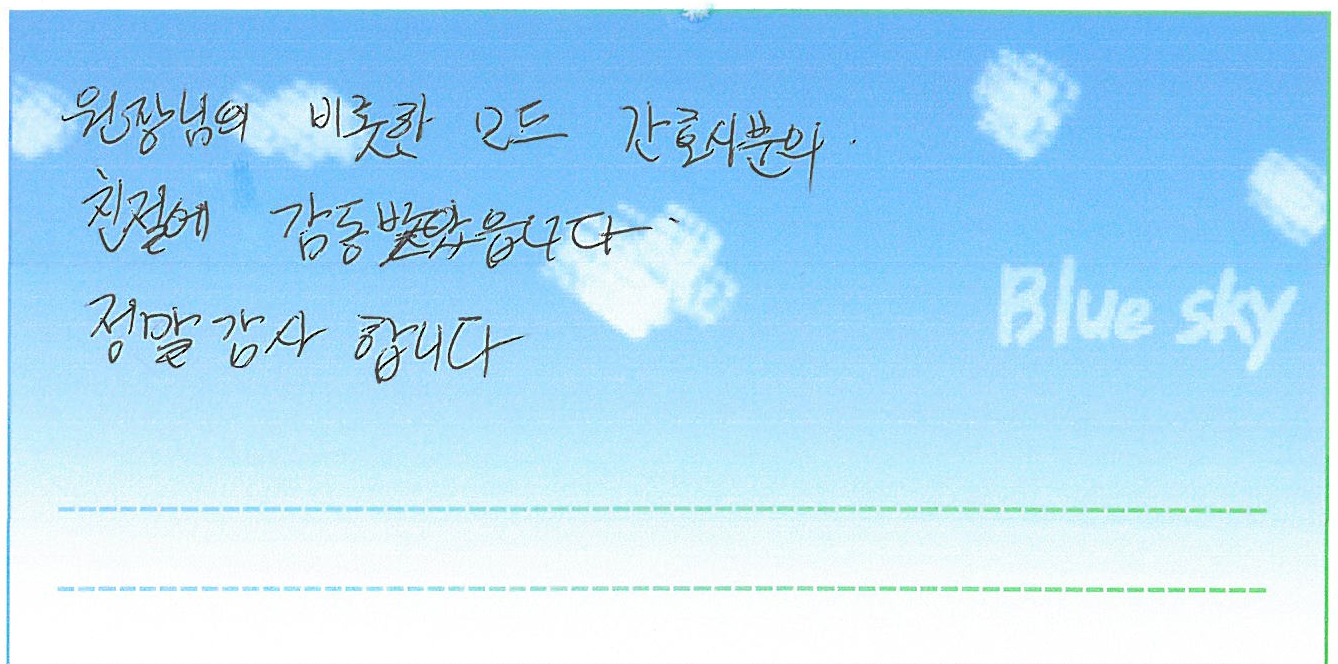 원장님의 비롯한 모든 간호사분의.
친절에 감동받았읍니다.
정말감사 합니다
Blue sky